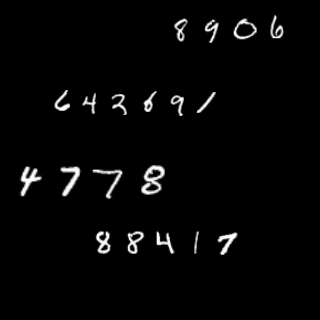 8906
642691
4778
88417